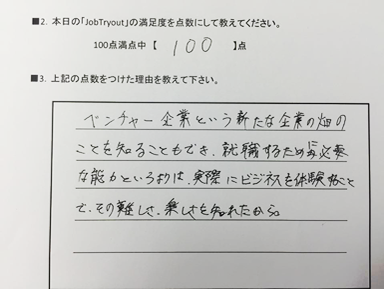 ■2. 本日の「JobTryout」の満足度を点数にして教えてください。
100点満点中【 100 】点
■3. 上記の点数をつけた理由を教えて下さい。
ベンチャー企業という新たな企業の畑の
ことを知ることもでき、就職するために必要
な能力というよりは、実際にビジネスを体験すること
で、その難しさ、楽しさを知れたから。